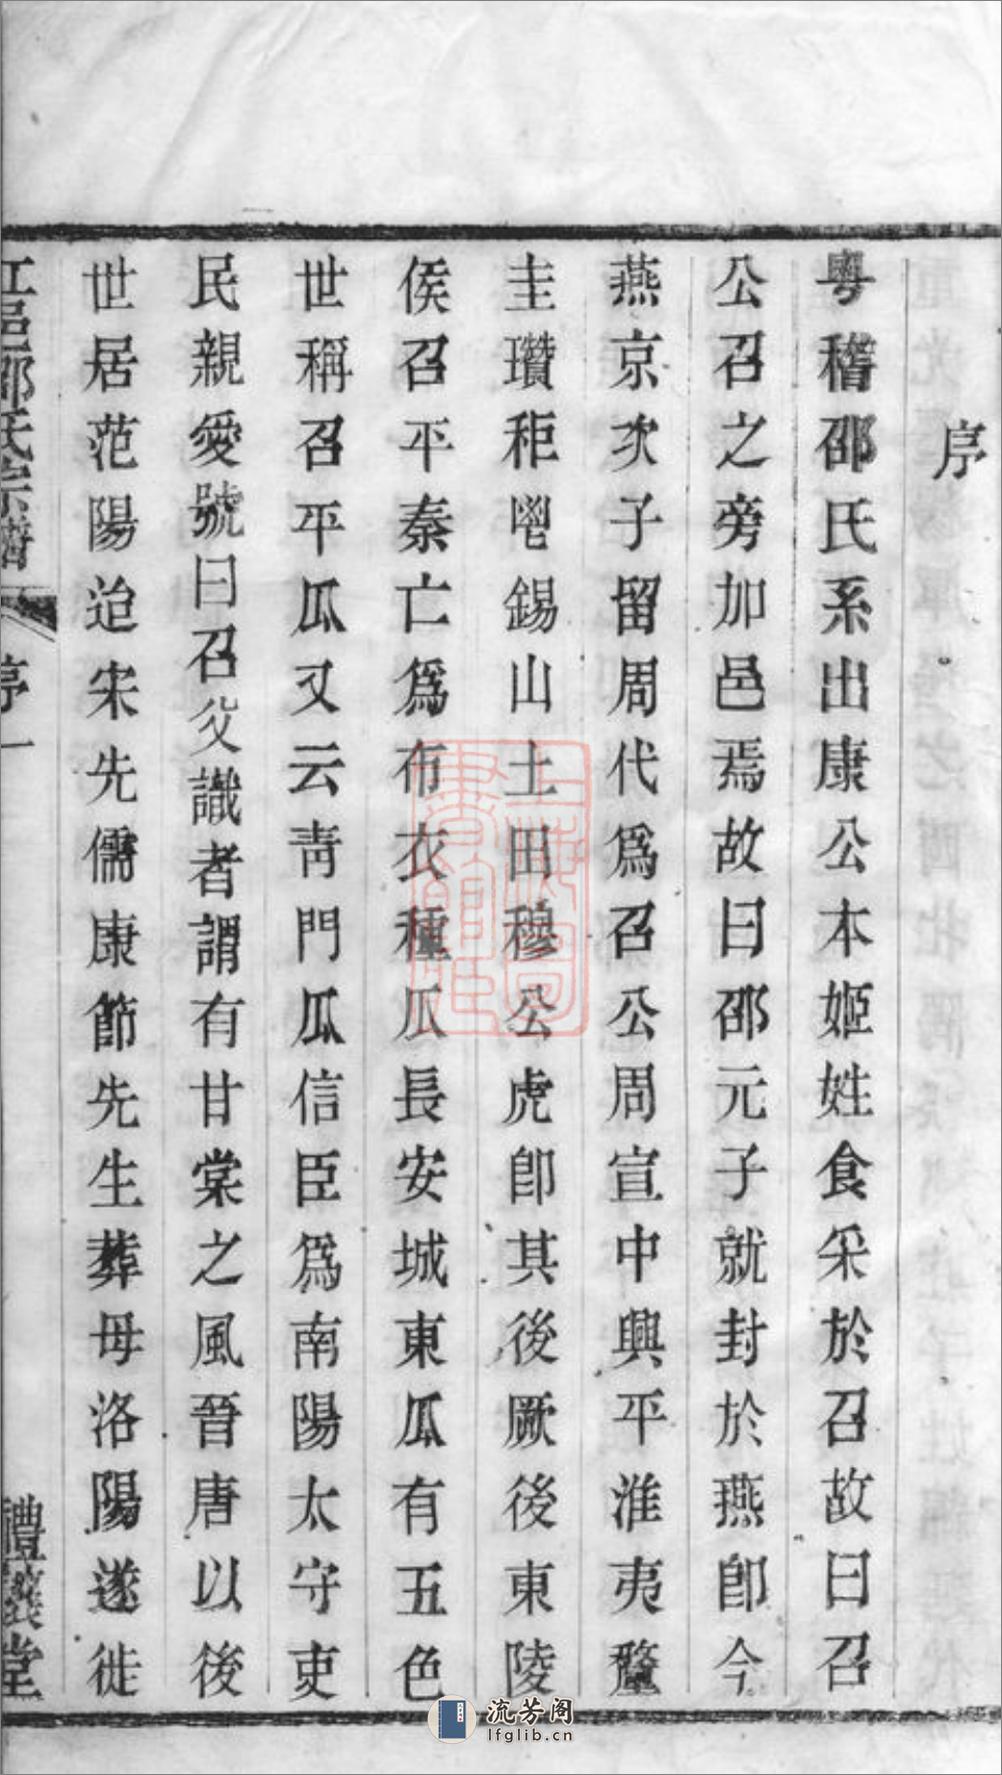 序
粵稽邵氏系出康公本姬姓食采於召故曰召
公召之旁加邑焉故曰邵元子就封於燕卽今
燕京次子留周代爲召公周宣中興平淮夷釐
圭瓚秬鬯錫山土田穆公虎卽其後厥後東陵
侯召平秦亡爲布衣種瓜長安城東瓜有五色
世稱召平瓜又云靑門瓜信臣爲南陽太守吏
民親愛號曰召父識者謂有甘棠之風晉唐以後
世居范陽迨宋先儒康節先生葬母洛陽遂徙
江邑邵氏宗譜
序一
禮讓堂
上海圖書館藏
流芳阁
lfglib.cn